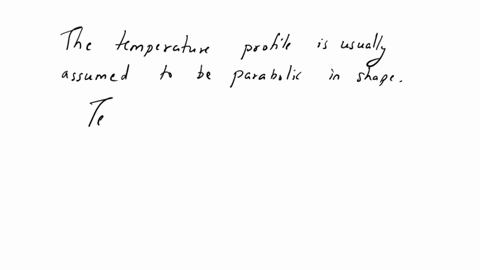 The temperature profile is usually
assumed to be parabolic in shape.
Te